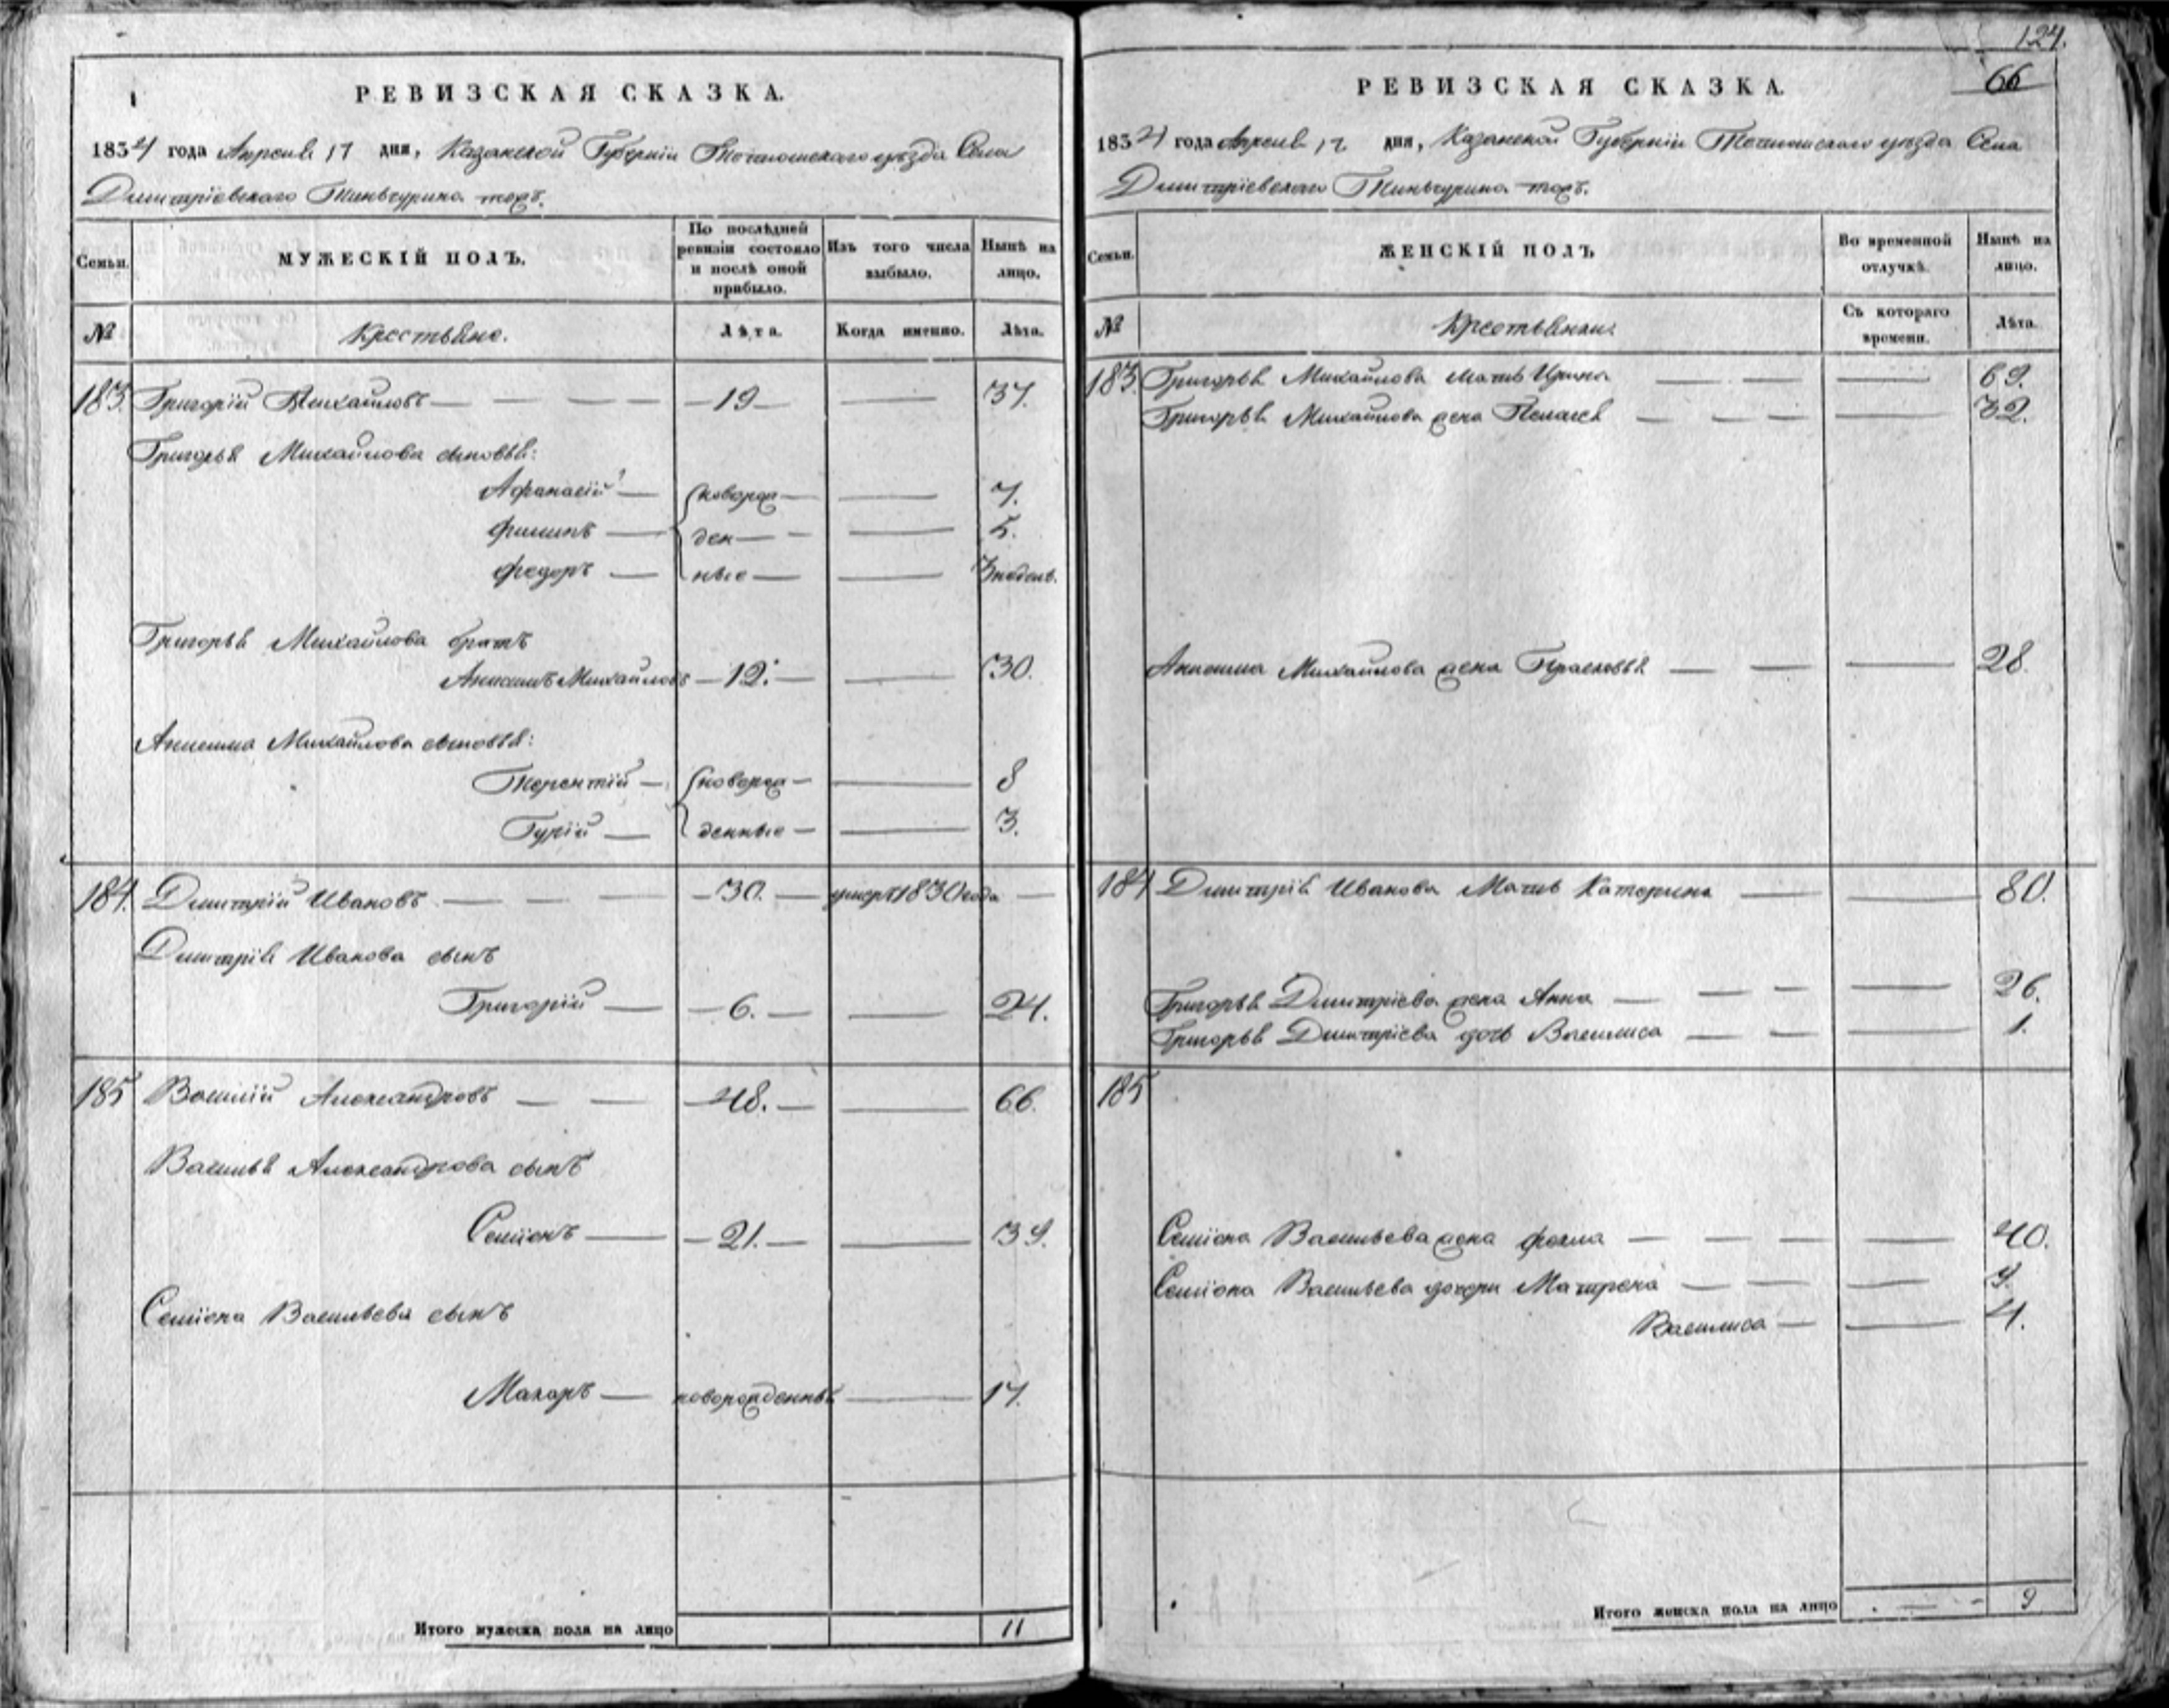 РЕВИЗСКАЯ СКАЗКА.
1834 года Апреля 17 дня, Казанской Губернiи Тетюшскаго уѣзда Села
Димитрiевскаго Тиньчурина тожъ.
Семьи.
МУЖЕСКIЙ ПОЛЪ.
По послѣдней
ревизiи состояло
и послѣ оной
прибыло.
Изъ того числа
выбыло.
Нынѣ на
лицо.
№
Крестьяне.
Лѣта.
Когда именно.
Лѣта.
183. Григорiй Михайловъ — 19 — 37.
Григорья Михайлова сыновья:
Афанасiй — новорож — 7.
Филипъ — ден — 5.
Федоръ — ные — 3 недель.
Григорья Михайлова братъ
Анисимъ Михайловъ — 12. — 30.
Анисима Михайлова сыновья:
Терентiй — новорож — 8
Гурiй — денные — 3.
184. Димитрiй Ивановъ — 30. — умеръ 1830 года —
Димитрiя Иванова сынъ
Григорiй — 6. — 24.
185 Василiй Александровъ — 48. — 66.
Василья Александрова сынъ
Семiонъ — 21. — 39.
Семiона Васильева сынъ
Макаръ — новорожденный — 17.
Итого мужеска пола на лицо 11
124.
66
РЕВИЗСКАЯ СКАЗКА.
1834 года Апреля 17 дня, Казанской Губернiи Тетюшскаго уѣзда Села
Димитрiевскаго Тиньчурина тожъ.
Семьи.
ЖЕНСКIЙ ПОЛЪ
Во временной
отлучкѣ.
Нынѣ на
лицо.
№
Крестьянки
Съ котораго
времени.
Лѣта.
183. Григорья Михайлова мать Ирина — 69.
Григорья Михайлова жена Пелагея — 32.
Анисима Михайлова жена Прасковья — 28.
184 Димитрiя Иванова Мать Катерина — 80.
Григорья Димитрiева жена Анна — 26.
Григорья Димитрiева дочь Василиса — 1.
185
Семiона Васильева жена Фекла — 40.
Семiона Васильева дочери Матрена — 9.
Василиса — 4.
Итого женска пола на лицо — 9